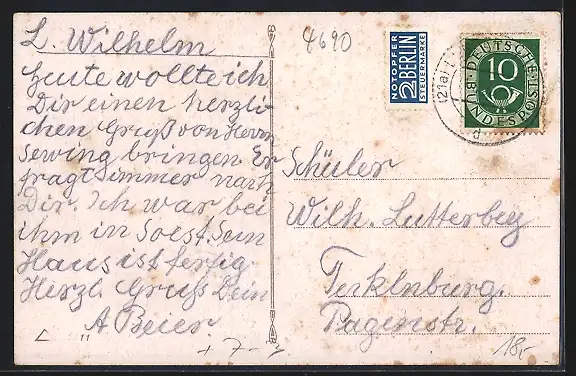 L. Wilhelm
heute wollte ich
Dir einen herzli-
chen Gruß von Herrn
Sewing bringen. Er
fragt immer nach
Dir. Ich war bei
ihm in Soest. Sein
Haus ist fertig.
Herzl. Gruß Dein
A. Beier
4690
NOTOPFER
2 BERLIN
STEUERMARKE
DEUTSCHE BUNDESPOST
10
(21a)
d
Schüler
Wilh. Lutterbey
Tecklnburg.
Pagenstr.
+ 7-
18,-